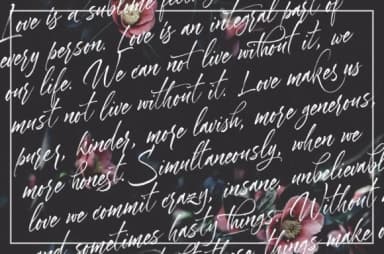 Love is a sublime feeling
every person. Love is an integral part of
our life. We can not live without it, we
must not live without it. Love makes us
purer, kinder, more lavish, more generous,
more honest. Simultaneously, when we
love we commit crazy, insane, unbelievable
and sometimes hasty things. Without
these things make